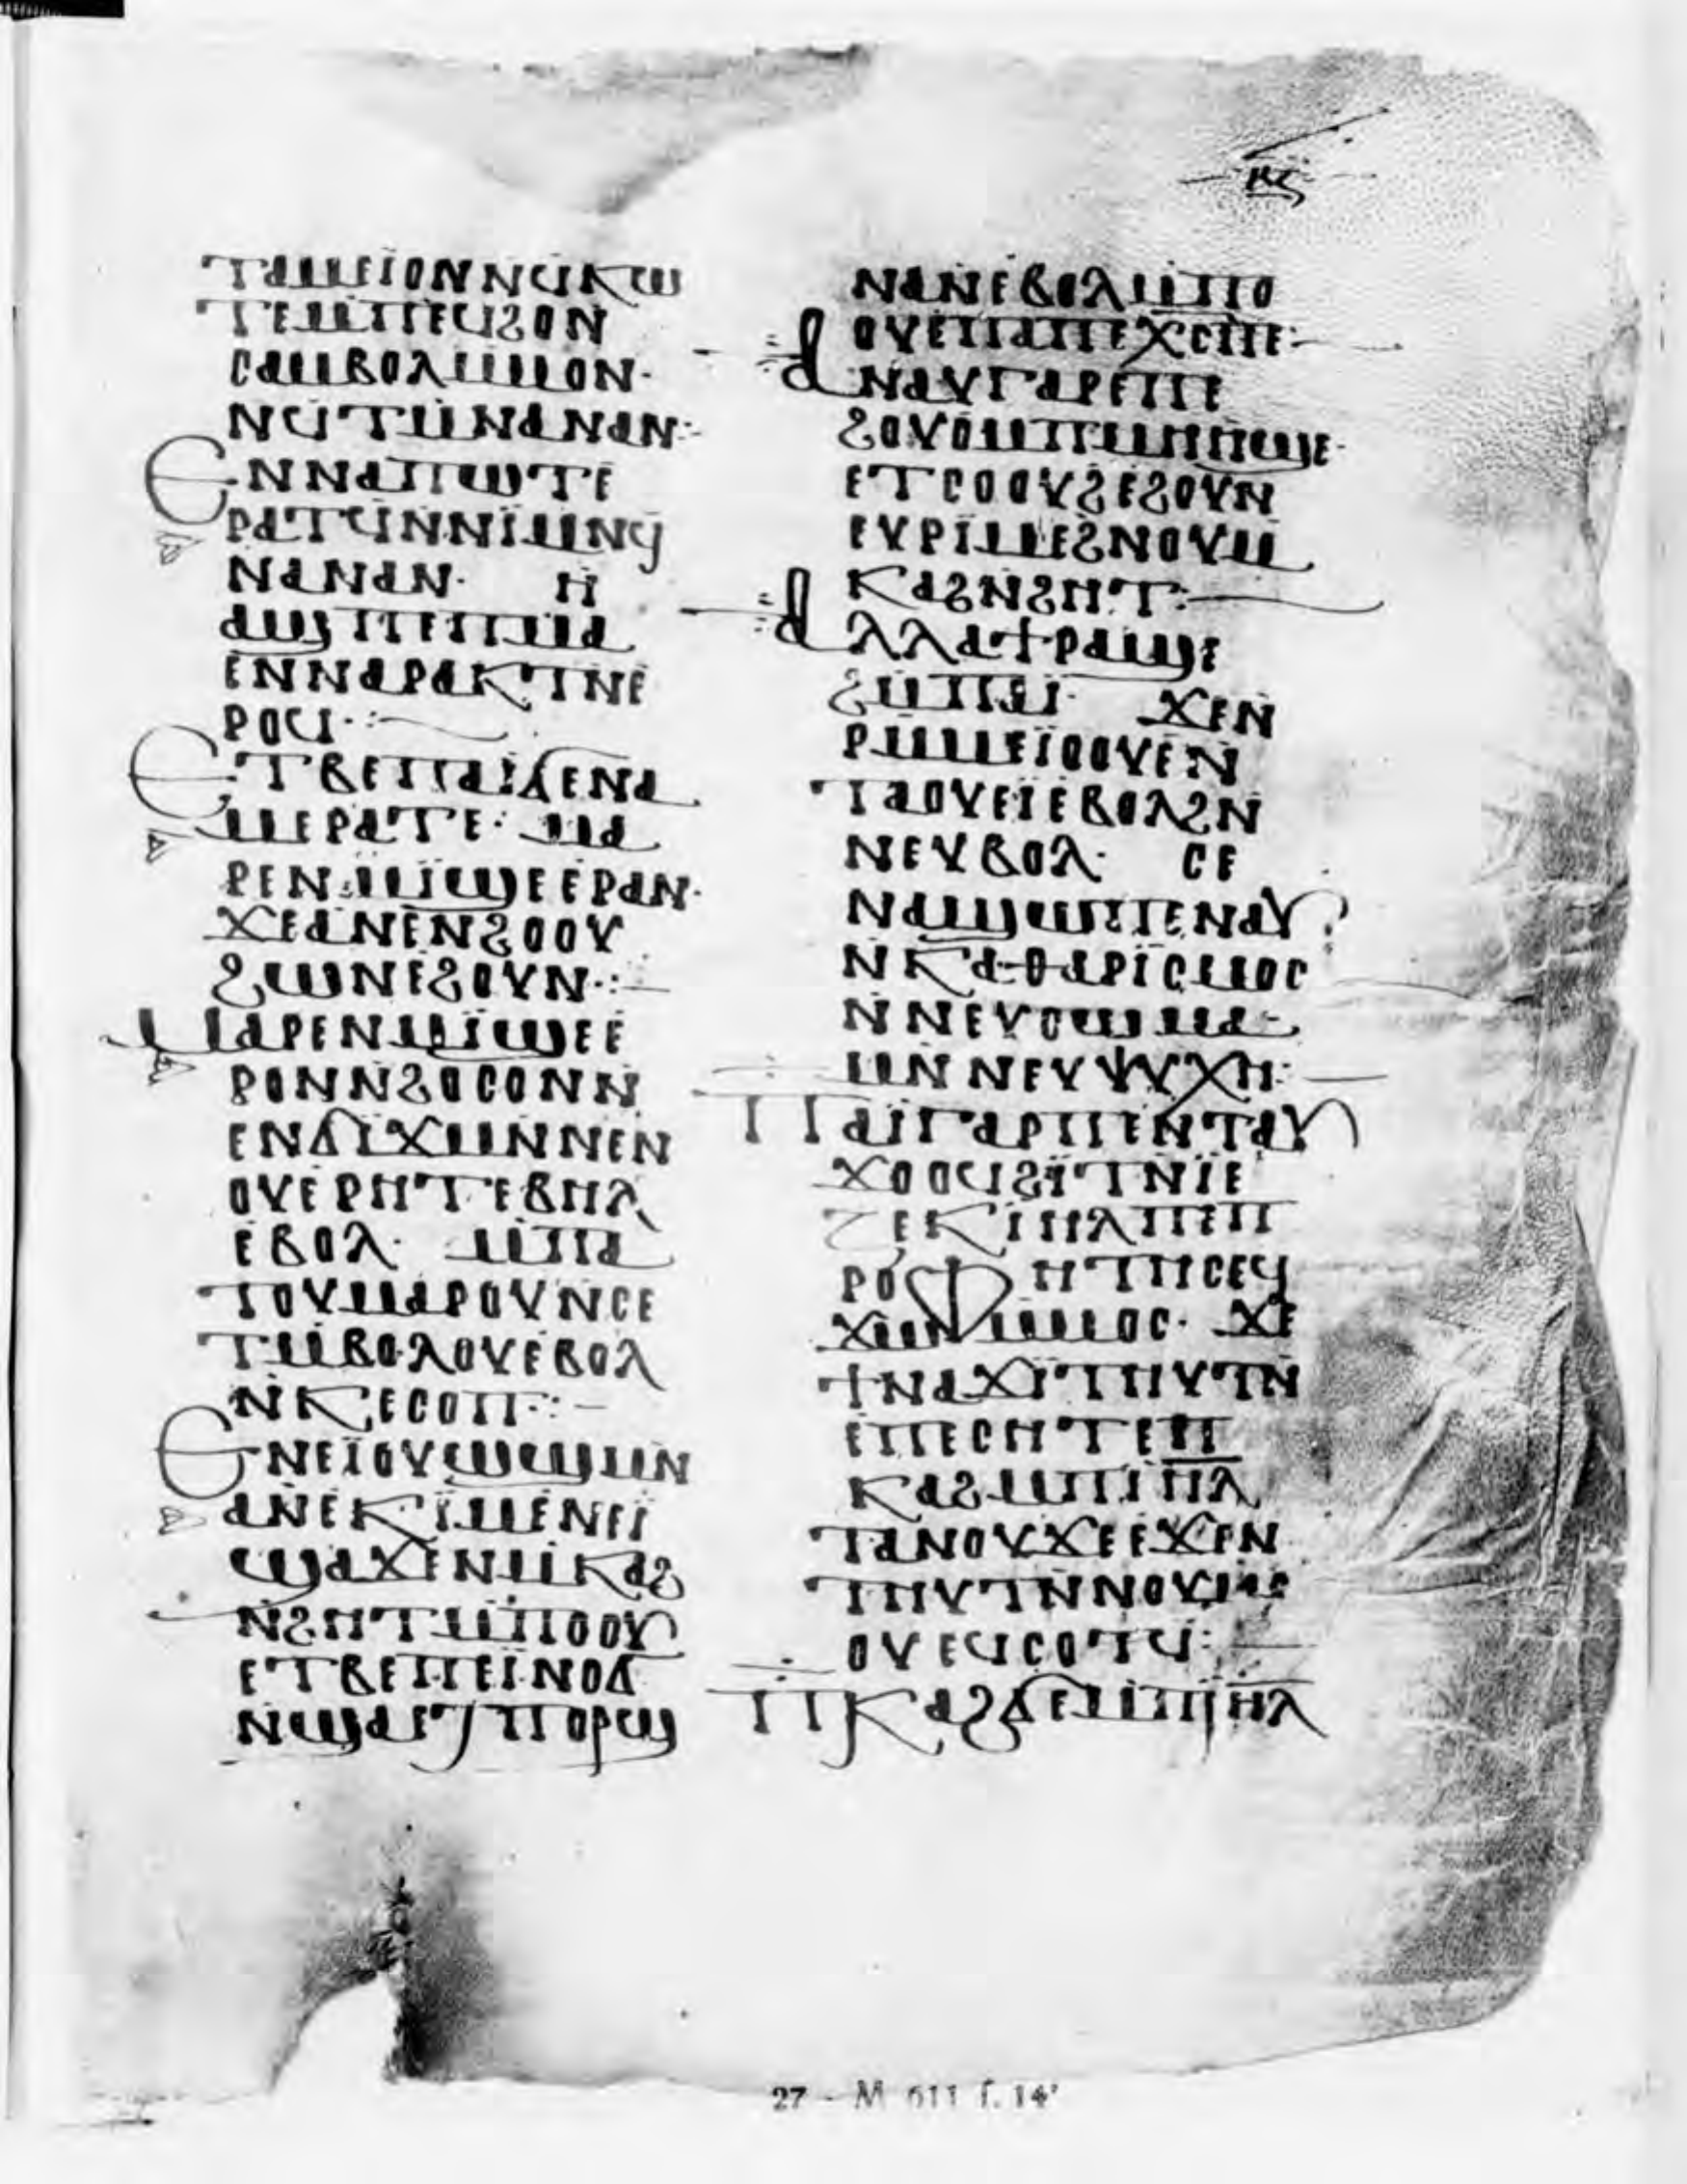 ⲕⲍ
ⲧⲁⲙⲉⲓⲟⲛ ⲛϥⲕⲱ
ⲧⲉ ⲙⲡⲉϥϩⲟⲛ
ⲥⲁⲙⲃⲟⲗ ⲙⲙⲟⲛ·
ⲛϥⲧⲙⲛⲁ ⲛⲁⲛ:
ⲉⲛⲛⲁⲡⲱⲧ ⲉ
ⲣⲁⲧϥ ⲛⲛⲓⲙ ⲛϥ
ⲛⲁ ⲛⲁⲛ· ⲏ
ⲁϣ ⲡⲉ ⲡⲙⲁ
ⲉⲛⲛⲁⲣⲁⲕⲧⲛ ⲉ
ⲣⲟϥ·:
ⲉⲧⲃⲉ ⲡⲁⲓ ϭⲉ ⲛⲁ
ⲙⲉⲣⲁⲧⲉ· ⲙⲁ
ⲣⲉⲛⲙⲓϣⲉ ⲉⲣⲁⲛ·
ϫⲉ ⲁⲛⲉⲛϩⲟⲟⲩ
ϩⲱⲛ ⲉϩⲟⲩⲛ·:
ⲙⲁⲣⲉⲛⲙⲓϣⲉ ⲉ
ⲣⲟⲛ ⲛϩⲟⲥⲟⲛ ⲛ
ⲉⲛϭⲓϫ ⲙⲛ ⲛⲉⲛ
ⲟⲩⲉⲣⲏⲧⲉ ⲃⲏⲗ
ⲉⲃⲟⲗ· ⲙⲡⲁ
ⲧⲟⲩⲙⲁⲣⲟⲩ ⲛⲥⲉ
ⲧⲙⲃⲟⲗⲟⲩ ⲉⲃⲟⲗ
ⲛⲕⲉⲥⲟⲡ·:
ⲉⲛⲉⲓⲟⲩⲱϣ ⲙⲛ
ⲁⲛⲉⲕⲓⲙ ⲉⲛⲉⲓ
ϣⲁϫⲉ ⲛⲙⲕⲁϩ
ⲛϩⲏⲧ ⲙⲡⲟⲟⲩ
ⲉⲧⲃⲉ ⲡⲉⲓⲛⲟϭ
ⲛϣⲁ ⲉⲧⲡⲟⲣϣ
ⲛⲁⲛ ⲉⲃⲟⲗ ⲙⲡⲟ
ⲟⲩ ⲉⲡⲁⲡⲉⲭⲥ ⲡⲉ:
ⲁⲛⲁⲩ ⲅⲁⲣ ⲉⲡⲉ
ϩⲟⲩⲟ ⲙⲡⲙⲏⲏϣⲉ·
ⲉⲧⲥⲟⲟⲩϩ ⲉϩⲟⲩⲛ
ⲉⲩⲣⲓⲙⲉ ϩⲛ ⲟⲩⲙ
ⲕⲁϩ ⲛϩⲏⲧ:
ⲁⲗⲗⲁ ϯⲣⲁϣⲉ
ϩⲙ ⲡⲁⲓ· ϫⲉ ⲛ
ⲣⲙⲙⲉⲓⲟⲟⲩⲉ ⲛ
ⲧⲁⲩⲉⲓ ⲉⲃⲟⲗ ϩⲛ
ⲛⲉⲩⲃⲟⲗ· ⲥⲉ
ⲛⲁϣⲱⲡⲉ ⲛⲁⲩ
ⲛⲕⲁⲑⲁⲣⲓⲥⲙⲟⲥ
ⲛⲛⲉⲩⲥⲱⲙⲁ·
ⲙⲛ ⲛⲉⲩⲯⲩⲭⲏ:
ⲡⲁⲓ ⲅⲁⲣ ⲡⲉⲛⲧⲁⲩ
ϫⲟⲟϥ ϩⲓⲧⲛ ⲓⲉ
ⲍⲉⲕⲓⲏⲗ ⲡⲉⲡ
ⲣⲟⲫⲏⲧⲏⲥ ⲉϥ
ϫⲱ ⲙⲙⲟⲥ· ϫⲉ
ϯⲛⲁϫⲓ ⲧⲏⲩⲧⲛ
ⲉⲡⲉⲥⲏⲧ ⲉⲡ
ⲕⲁϩ ⲙⲡⲓⲏⲗ
ⲧⲁⲛⲟⲩϫⲉ ⲉϫⲛ
ⲧⲏⲩⲧⲛ ⲛⲟⲩⲙⲟ
ⲟⲩ ⲉϥⲥⲟⲧϥ:
ⲡⲕⲁϩ ϭⲉ ⲙⲡⲓⲏⲗ
27 - M 611 f. 14ʳ